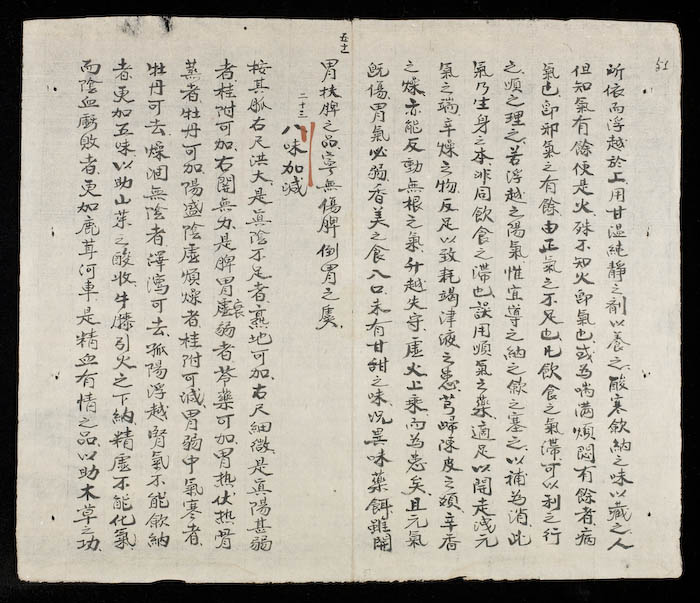 51
所依而浮越於上用甘温純靜之劑以養之酸寒歛納之味以藏之人
但知氣有餘便是火殊不知火卽氣也或為喘滿煩悶有餘者病
氣也卽邪氣之有餘由正氣之不足也凡飲食之氣滯可以利之行
之順之理之若浮越之陽氣惟宜導之納之歛之基之以補為消此
氣乃生身之本非同飲食之滯也誤用順氣之藥適足以開走泄元
氣之端辛燥之物反足以致耗竭津液之患芎歸陳皮之類辛香
之燥亦能反動無根之氣升越失守虛火上乘而為患矣且元氣
旣傷胃氣必弱香美之食入口未有甘甜之味况異味藥餌雖開
五十一
胃扶脾之品寧無傷脾倒胃之虞
二十三 八味加減
按其脈右尺洪大是眞陰不足者熟地可加右尺細微是眞陽甚弱
者桂附可加右關無力是脾胃虛衰弱者苓藥可加胃热伏热骨
蒸者牡丹可加陽盛陰虛煩燥者桂附可減胃弱中氣寒者
牡丹可去燥涸無陰者澤瀉可去孤陽浮越腎氣不能歛納
者更加五味以助山茱之酸收牛膝引火之下納精虛不能化氣
而陰血虧敗者更加鹿茸河車是精血有情之品以助木草之功